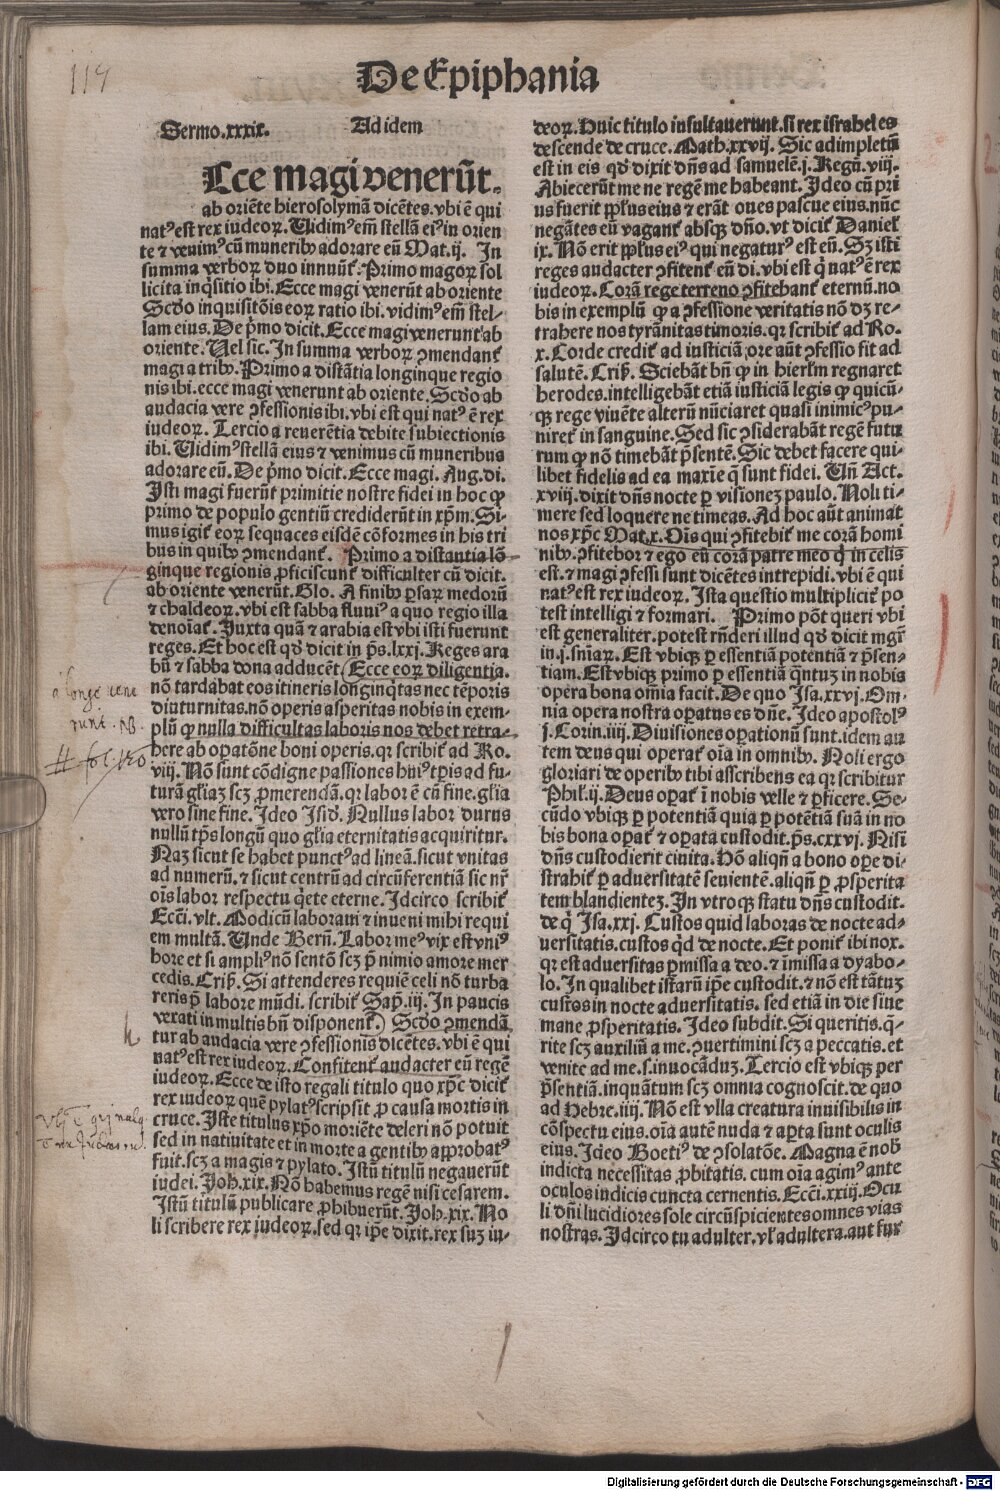 114
De Epiphania
Sermo.xxxix. Ad idem
Ecce magi venerūt.
ab oriēte hierosolymā dicētes.vbi ē qui
natꝰ est rex iudeoꝝ.Uidimꝰ em̄ stellā eiꝰ in orien
te ⁊ venimꝰ cū munerib⁹ adorare eū Mat.ij. In
summa verboꝝ duo innuūt̄.Primo magoꝝ sol
licita inq̇sitio ibi.Ecce magi venerūt ab oriente
Scḋo inquisitōis eoꝝ ratio ibi.vidimꝰ em̄ stel-
lam eius.De p̄mo dicit.Ecce magi venerunt ab
oriente.Uel sic.In summa verboꝝ ꝯmendant̄
magi a trib⁹.Primo a distātia longinque regio
nis ibi.ecce magi venerunt ab oriente.Scḋo ab
audacia vere ꝯfessionis ibi.vbi est qui natꝰ ē rex
iudeoꝝ. Tercio a reuerētia debite subiectionis
ibi.Uidimꝰ stellā eius ⁊ venimus cū muneribus
adorare eū.De p̄mo dicit.Ecce magi.Aug.di.
Isti magi fuerūt primitie nostre fidei in hoc ꝙ
primo de populo gentiū crediderūt in xp̄m.Si-
mus igit̄ eoꝝ sequaces eisdē cōformes in his tri
bus in quib⁹ ꝯmendant̄. Primo a distantia lō-
ginque regionis ꝓficiscunt̄ difficulter cū dicit.
ab oriente venerūt.Glo. A finib⁹ ꝑsaꝝ medorū
⁊ chaldeoꝝ.vbi est sabba fluuiꝰ a quo regio illa
denoīat̄.Iuxta quā ⁊ arabia est vbi isti fuerunt
reges.Et hoc est qḋ dicit in ps̄.lxxj.Reges ara
bū ⁊ sabba dona adducēt (Ecce eoꝝ diligentia.
nō tardabat eos itineris longinq̇tas nec tēporis
diuturnitas.nō operis asperitas nobis in exem-
plū ꝙ nulla difficultas laboris nos debet retra-
here ab opatōne boni operis.qꝛ scribit̄ ad Ro.
viij. Nō sunt cōdigne passiones huiꝰ tp̄is ad fu-
turā gl̄iaꝫ scꝫ ꝓmerendā.qꝛ labor ē cū fine.gl̄ia
vero sine fine.Ideo Isiḋ. Nullus labor durus
nullū tp̄s longū quo gl̄ia eternitatis acquiritur.
Naꝫ sicut se habet punctꝰ ad lineā.sicut vnitas
ad numerū.⁊ sicut centrū ad circūferentiā sic nr̄
oīs labor respectu q̇ete eterne. Idcirco scribit̄
Ecci.vlt.Modicū laboraui ⁊ inueni mihi requi
em multā. Unde Bern̄. Labor meꝰ vix est vniꝰ
hore et si ampliꝰ nō sentō scꝫ p̄ nimio amore mer
cedis.Crisͥ. Si attenderes requiē celi nō turba
reris ꝓ labore mūdi. scribit̄ Sap̄.iij.In paucis
vexati in multis bn̄ disponent̄.) Scḋo ꝯmendā
tur ab audacia vere ꝯfessionis dicētes.vbi ē qui
natꝰ est rex iudeoꝝ. Confitent̄ audacter eū regē
iudeoꝝ. Ecce de isto regali titulo quo xp̄c dicit̄
rex iudeoꝝ quē pylatꝰ scripsit ꝓ causa mortis in
cruce. Iste titulus xp̄o moriēte deleri nō potuit
sed in natiuitate et in morte a gentib⁹ approbatꝰ
fuit.scꝫ a magis ⁊ pylato.Istū titulū negauerūt
iudei. Joh.xix. Nō habemus regē nisi cesarem.
Istū titulū publicare ꝓhibuerūt.Joh.xix.No
li scribere rex iudeoꝝ.sed qꝛ ip̄e dixit.rex suꝫ iu-
deoꝝ. Huic titulo insultauerunt.si rex israhel es
descende de cruce.Math.xxvij. Sic adimpletū
est in eis qḋ dixit dn̄s ad samuelē.j.Regū.viij.
Abiecerūt me ne regē me habeant.Ideo cū pri
us fuerit ppl̄us eius ⁊ erāt oues pascue eius.nūc
negātes eū vagant̄ absqꝫ dn̄o.vt dicit̄ Daniel̄
ix. Nō erit ppl̄us eiꝰ qui negaturꝰ est eū.Sꝫ isti
reges audacter ꝯfitent̄ eū di.vbi est q̇ natꝰ ē rex
iudeoꝝ.Corā rege terreno ꝯfitebant̄ eternū.no
bis in exemplū ꝙ a ꝯfessione veritatis nō dꝫ re-
trahere nos tyrānitas timoris.qꝛ scribit̄ ad Ro.
x.Corde credit̄ ad iusticiā.ore aūt ꝯfessio fit ad
salutē.Crisͥ. Sciebāt bn̄ ꝙ in hierl̄m regnaret
herodes.intelligebāt etiā iusticiā legis ꝙ quicū-
qꝫ rege viuēte alterū nūciaret quasi inimicꝰ pu-
niret̄ in sanguine.Sed sic ꝯsiderabāt regē futu
rum ꝙ nō timebāt p̄sentē.Sic debet facere qui-
libet fidelis ad ea maxīe q̄ sunt fidei. Un̄ Act.
xviij.dixit dn̄s nocte ꝑ visionez paulo.Noli ti-
mere sed loquere ne timeas.Ad hoc aūt animat
nos xp̄c Mat.x.Oīs qui ꝯfitebit̄ me corā homi
nib⁹.ꝯfitebor ⁊ ego eū corā patre meo q̇ in celis
est.⁊ magi ꝯfessi sunt dicētes intrepidi.vbi ē qui
natꝰ est rex iudeoꝝ. Ista questio multiplicit̄ po
test intelligi ⁊ formari. Primo pōt queri vbi
est generaliter.potest rn̄deri illud qḋ dicit mgr̄
in.j.sniaꝝ. Est vbiqꝫ ꝑ essentiā potentiā ⁊ p̄sen-
tiam.Est vbiqꝫ primo ꝑ essentiā q̄ntuꝫ in nobis
opera bona omnia facit.De quo Isa.xxvj.Om-
nia opera nostra opatus es dn̄e.Ideo apostolꝰ
j.Corin.iiij.Diuisiones opationū sunt.idem au
tem deus qui operat̄ oīa in omnib⁹. Noli ergo
gloriari de operib⁹ tibi ascribens ea qꝛ scribitur
Phil̄.ij.Deus opat̄ ī nobis velle ⁊ ꝑficere.Se-
cūdo vbiqꝫ ꝑ potentiā quia ꝑ potētiā suā in no
bis bona opat̄ ⁊ opata custodit.ps̄.cxxvj. Nisi
dn̄s custodierit ciuita.Hō aliqn̄ a bono opе di-
strahit̄ ꝑ aduersitatē seuientē.aliqn̄ ꝑ ꝓsperita
tem blandientez.In vtroqꝫ statu dn̄s custodit.
de q̇ Isa.xxj. Custos quid laboras de nocte ad-
uersitatis.custos q̇d de nocte.Et ponit̄ ibi nox.
qꝛ est aduersitas ꝑmissa a deo.⁊ īmissa a dyabo-
lo.In qualibet istarū ip̄e custodit.⁊ nō est tātuꝫ
custos in nocte aduersitatis. sed etiā in die siue
mane ꝓsperitatis. Ideo subdit.Si queritis.q̄-
rite scꝫ auxiliū a me.ꝯuertimini scꝫ a peccatis.et
venite ad me.s.inuocāduꝫ.Tercio est vbiqꝫ per
p̄sentiā.inquātum scꝫ omnia cognoscit.de quo
ad Hebre.iiij. Nō est vlla creatura inuisibilis in
cōspectu eius.oīa autē nuda ⁊ aꝑta sunt oculis
eius. Ideo Boetiꝰ de ꝯsolatōe. Magna ē nob̄
indicta necessitas ꝓbitatis. cum oīa agimꝰ ante
oculos iudicis cuncta cernentis.Ecci.xxiij.Ocu
li dn̄i lucidiores sole circūspicientes omnes vias
nostras.Idcirco tu adulter.vl̄ adultera.aut fur
a longe vene
runt. NB.